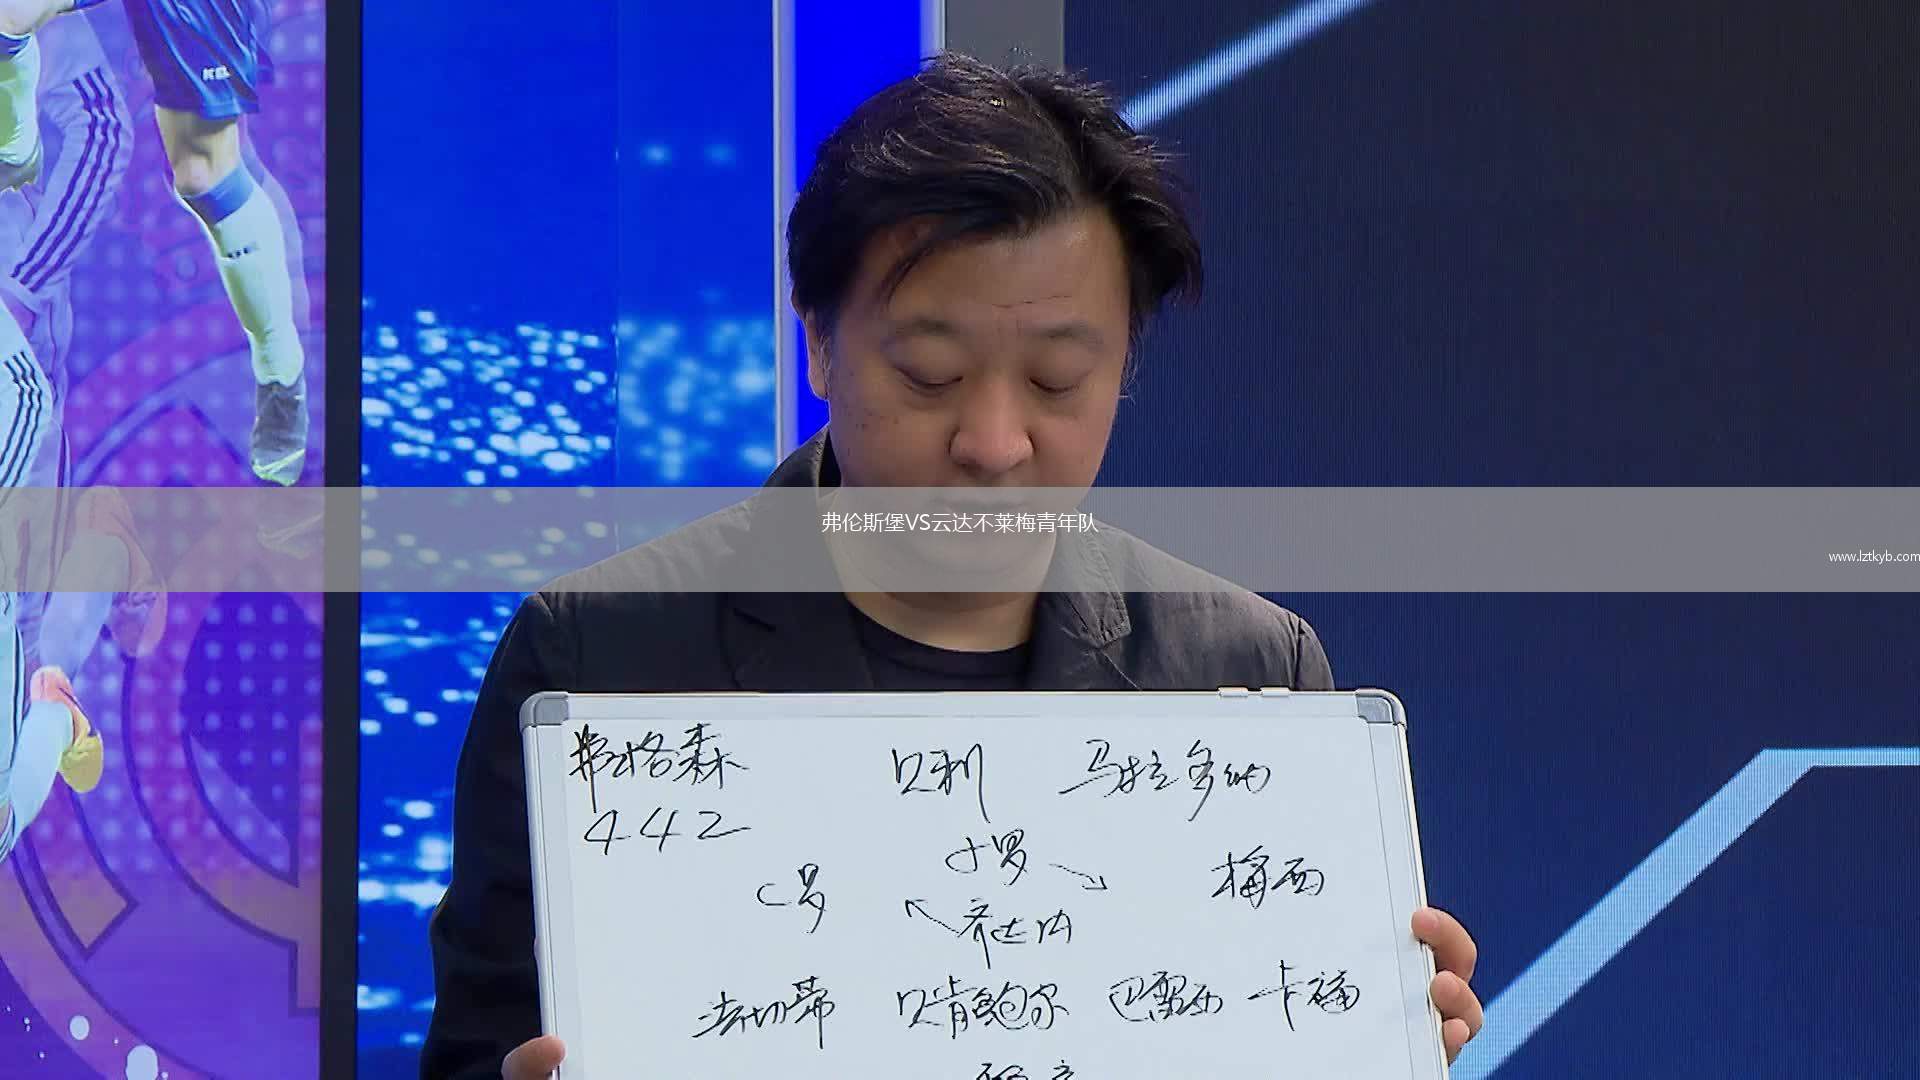 弗伦斯堡VS云达不莱梅青年队
www.lztkyb.com
弗格森 贝利 马拉多纳
442
小罗
C罗 梅西
齐达内
法切蒂 贝肯鲍尔 巴雷西 卡福